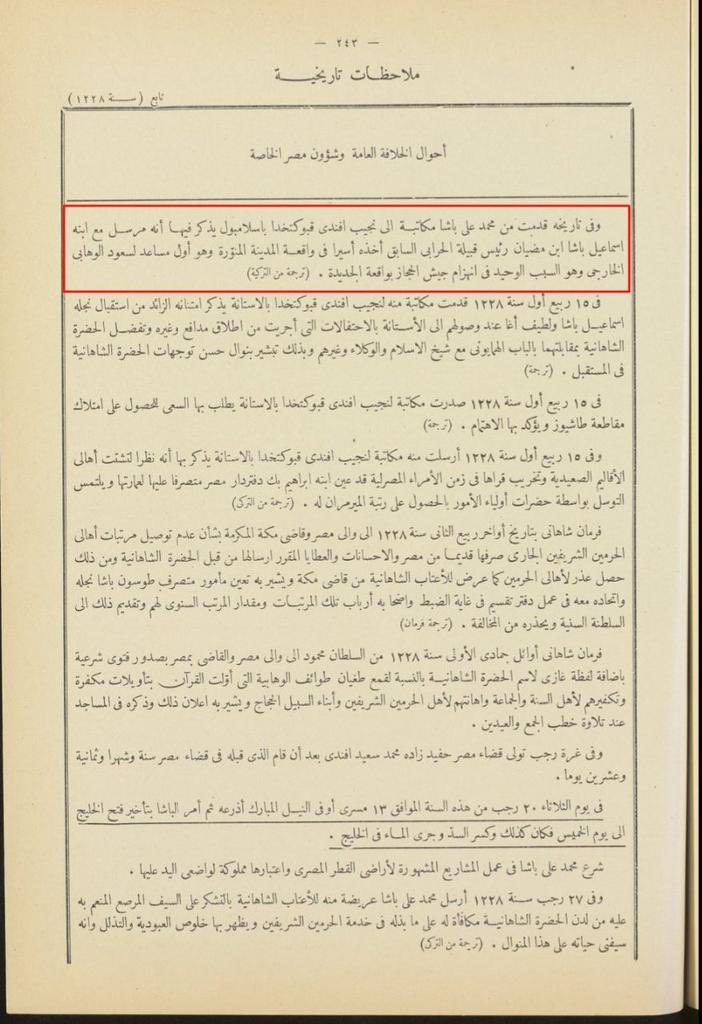 — ٢٤٣ —
ملاحظات تاريخية
تابع (سنة ١٢٢٨)
أحوال الخلافة العامة وشؤون مصر الخاصة
وفى تاريخه قدمت من محمد على باشا مكاتبة الى نجيب افندى قبوكتخدا باسلامبول يذكر فيها أنه مرسل مع ابنه
اسماعيل باشا ابن مضيان رئيس قبيلة الحرابى السابق أخذه أسيرا فى واقعة المدينة المنورة وهو أول مساعد لسعود الوهابى
الخارجى وهو السبب الوحيد فى انهزام جيش الحجاز بواقعة الجديدة . (ترجمة من التركية)
فى ١٥ ربيع أول سنة ١٢٢٨ قدمت مكاتبة منه لنجيب افندى قبوكتخدا بالاستانة يذكر امتنانه الزائد من استقبال نجله
اسماعيل باشا ولطيف أغا عند وصولهم الى الأستانة بالاحتفالات التى أجريت من اطلاق مدافع وغيره وتفضل الحضرة
الشاهانية بمقابلتهما بالباب الهمايونى مع شيخ الاسلام والوكلاء وغيرهم وبذلك تبشير بنوال حسن توجهات الحضرة الشاهانية
فى المستقبل . (ترجمة)
فى ١٥ ربيع أول سنة ١٢٢٨ صدرت مكاتبة لنجيب افندى قبوكتخدا بالاستانة يطلب بها السعى للحصول على امتلاك
مقاطعة طاشيوز ويؤكد بها الاهتمام . (ترجمة)
وفى ١٥ ربيع أول سنة ١٢٢٨ أرسلت منه مكاتبة لنجيب افندى قبوكتخدا بالاستانة يذكر بها أنه نظرا لتشتت أهالى
الأقاليم الصعيدية وتخريب قراها فى زمن الأمراء المصرلية قد عين ابنه ابراهيم بك دفتردار مصر متصرفا عليها لعمارتها ويلتمس
التوسل بواسطة حضرات أولياء الأمور بالحصول على رتبة الميرمران له . (ترجمة من التركى)
فرمان شاهانى بتاريخ أواخر ربيع الثانى سنة ١٢٢٨ الى والى مصر وقاضى مكة المكرمة بشأن عدم توصيل مرتبات أهالى
الحرمين الشريفين الجارى صرفها قديما من مصر والاحسانات والعطايا المقرر ارسالها من قبل الحضرة الشاهانية ومن ذلك
حصل عذر لأهالى الحرمين كما عرض للأعتاب الشاهانية من قاضى مكة ويشير به تعين مأمور متصرف طوسون باشا نجله
واتحاده معه فى عمل دفتر تقسيم فى غاية الضبط واضحا به أرباب تلك المرتبات ومقدار المرتب السنوى لهم وتقديم ذلك الى
السلطنة السنية ويحذره من المخالفة . (ترجمة فرمان)
فرمان شاهانى أوائل جمادى الأولى سنة ١٢٢٨ من السلطان محمود الى والى مصر والقاضى بمصر بصدور فتوى شرعية
باضافة لفظة غازى لاسم الحضرة الشاهانية بالنسبة لقمع طغيان طوائف الوهابية التى أولت القرآن بتأويلات مكفرة
وتكفيرهم لأهل السنة والجماعة واهانتهم لأهل الحرمين الشريفين وأبناء السبيل الحجاج ويشير به اعلان ذلك وذكره فى المساجد
عند تلاوة خطب الجمع والعيدين .
وفى غرة رجب تولى قضاء مصر حفيد زاده محمد سعيد افندى بعد أن قام الذى قبله فى قضاء مصر سنة وشهرا وثمانية
وعشرين يوما .
فى يوم الثلاثاء ٢٠ رجب من هذه السنة الموافق ١٣ مسرى أوفى النيل المبارك أذرعه ثم أمر الباشا بتأخير فتح الخليج
الى يوم الخميس فكان كذلك وكسر السد وجرى الماء فى الخليج .
شرع محمد على باشا فى عمل المشاريع المشهورة لأراضى القطر المصرى واعتبارها مملوكة لواضعى اليد عليها .
وفى ٢٧ رجب سنة ١٢٢٨ أرسل محمد على باشا عريضة منه للأعتاب الشاهانية بالتشكر على السيف المرصع المنعم به
عليه من لدن الحضرة الشاهانية مكافأة له على ما بذله فى خدمة الحرمين الشريفين ويظهر بها خلوص العبودية والتذلل وانه
سيفنى حياته على هذا المنوال . (ترجمة من التركى)